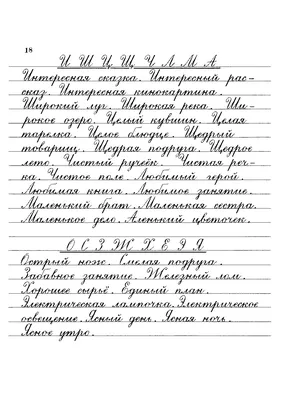 18
И Ш Ц Щ Ч Л М А
Интересная сказка. Интересный рас-
сказ. Интересная кинокартина.
Широкий луг. Широкая река. Ши-
рокое озеро. Целый кувшин. Целая
тарелка. Целое блюдце. Щедрый
товарищ. Щедрая подруга. Щедрое
лето. Чистый ручеёк. Чистая реч-
ка. Чистое поле. Любимый герой.
Любимая книга. Любимое занятие.
Маленький брат. Маленькая сестра.
Маленькое дело. Аленький цветочек.
О С З Ж Х Е Э Я
Острый нож. Смелая подруга.
Забавное занятие. Железный лом.
Хорошее сырьё. Единый план.
Электрическая лампочка. Электрическое
освещение. Ясный день. Ясная ночь.
Ясное утро.